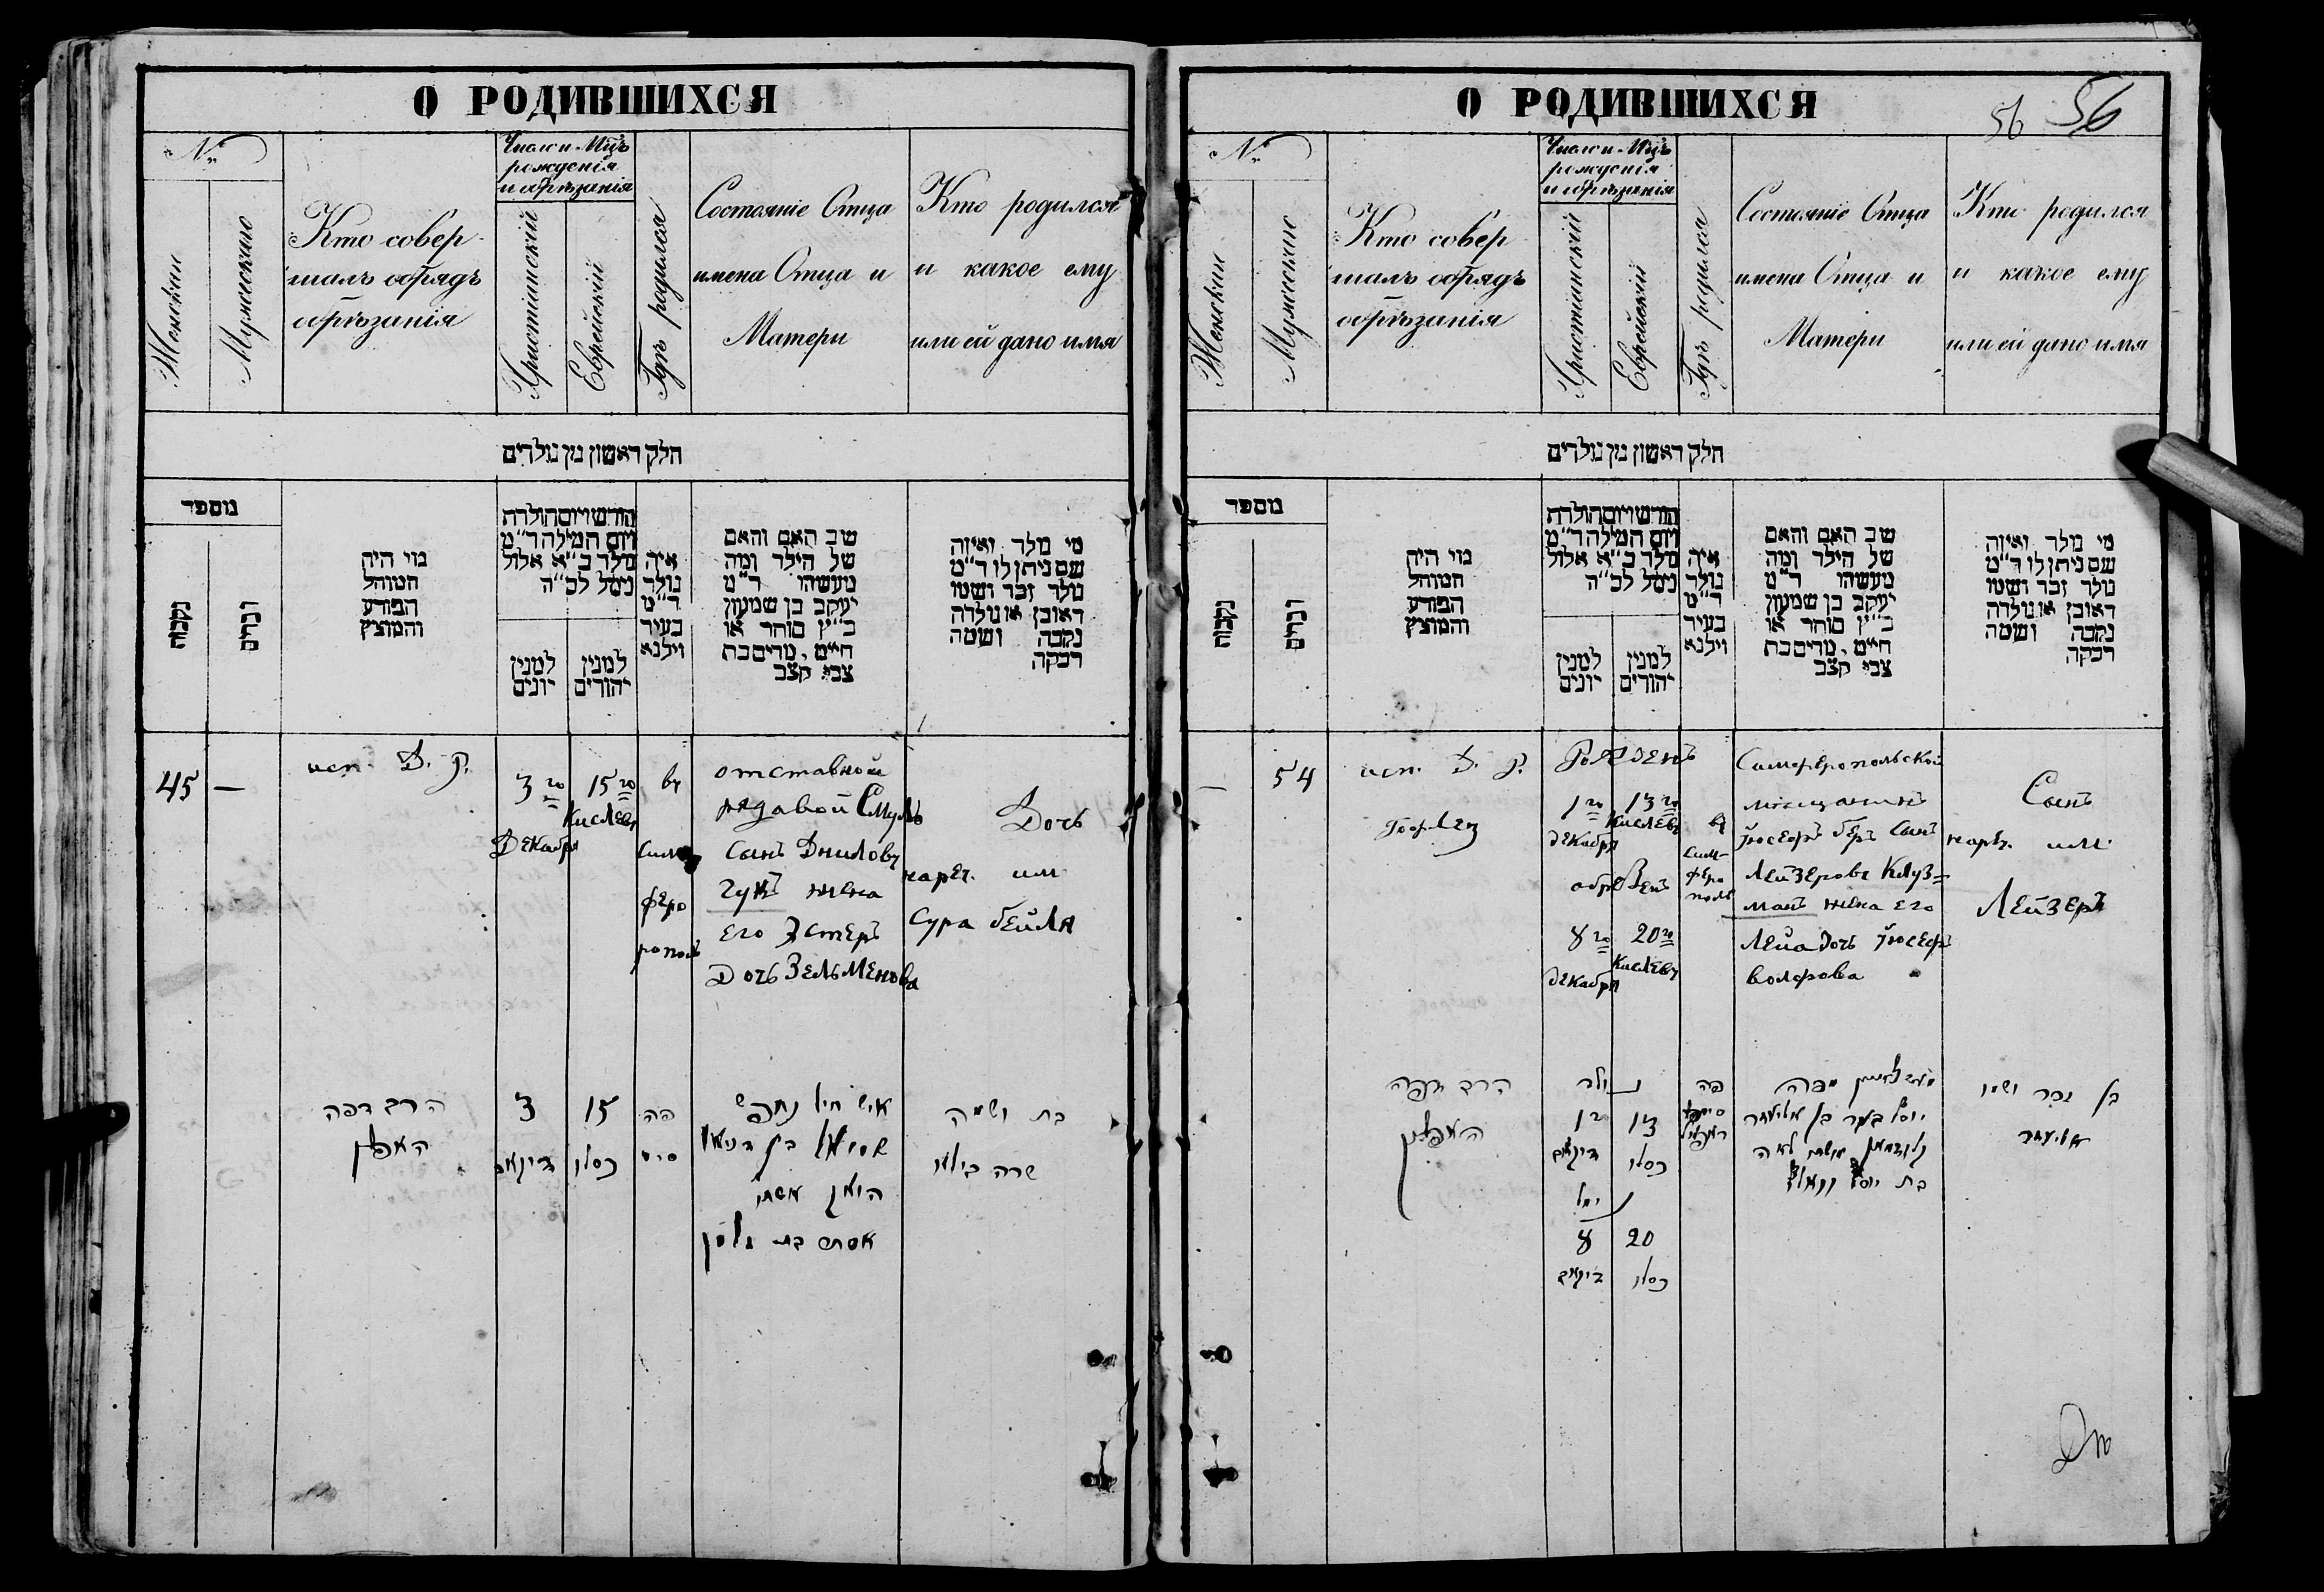 О РОДИВШИХСЯ
№
Женскій
Мужескаго
Кто совер
шалъ обрядъ
обрѣзанія
Число и Мцъ
рожденія
и обрѣзанія
Христіанскій
Еврейскій
Гдѣ родился
Состояніе Отца
имена Отца и
Матери
Кто родился
и какое ему
или ей дано имя
חלק ראשון מן נולדים
מספר
נקבות
זכרים
מי היה
המוהל
הפורע
והמוצץ
חודש ויום הולדת
ויום המילה ד״מ
נולד ב״א אלול
נימל לכ״ה
למנין
יונים
למנין
יהודים
איה
נולד
ד״מ
בעיר
וילנא
שב האם והאם
של הילד ומה
מעשהו ד״מ
יעקב בן שמעון
כ״ץ סוחר או
חיים, מרים בת
צבי קצב
מי נולד ואיזה
שם ניתן לו ד״מ
נולד זכר ושמו
ראובן או נולדה
נקבה ושמה
רבקה
45 —
исп. Д. Р.
3го
Декабря
15го
Кислевъ
въ
Сим
феро
рополъ
отставной
рядовой Смуль
Сынъ Днилову
жена
его Эстеръ
Дочь Зельменова
Дочь
нареч. им
Сура Бейля
הרב דפה
האפלין
3
דיקאב
15
כסלו
פה
סימ
איש חיל
שמואל בין דניאל
אשתו
אסתר בת זלמן
בת ושמה
שרה ביילא
О РОДИВШИХСЯ
56 56
№
Женскій
Мужескаго
Кто совер
шалъ обрядъ
обрѣзанія
Число и Мцъ
рожденія
и обрѣзанія
Христіанскій
Еврейскій
Гдѣ родился
Состояніе Отца
имена Отца и
Матери
Кто родился
и какое ему
или ей дано имя
חלק ראשון מן נולדים
מספר
נקבות
זכרים
מי היה
המוהל
הפורע
והמוצץ
חודש ויום הולדת
ויום המילה ד״מ
נולד ב״א אלול
נימל לכ״ה
למנין
יונים
למנין
יהודים
איה
נולד
ד״מ
בעיר
וילנא
שב האם והאם
של הילד ומה
מעשהו ד״מ
יעקב בן שמעון
כ״ץ סוחר או
חיים, מרים בת
צבי קצב
מי נולד ואיזה
שם ניתן לו ד״מ
נולד זכר ושמו
ראובן או נולדה
נקבה ושמה
רבקה
— 54
исп. Д. Р.
Рожденъ
1го
декабря
13го
Кислевъ
обрезенъ
8го
декабря
20го
Кислевъ
въ
Сим-
феро
поль
Симферопольской
мещанинъ
Іюсефъ Беръ Сынъ
Лейзеровъ Клуз=
манъ жена его
Лейа дочь Іюсефъ
Волфова
Сынъ
нареч. им.
Лейзеръ
הרב דפה
האפלין
נולד
1
דיקאב
13
כסלו
נימל
8
דיקאב
20
כסלו
פה
יוסף בער בן אליעזר
קלוזמאן אשתו לאה
בת יוסף וואלף
בן זכר ושמו
אליעזר